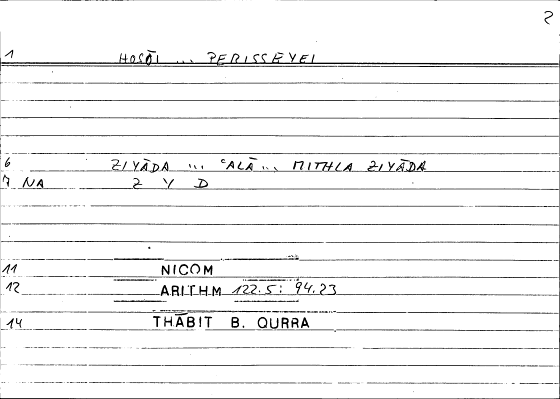 2
1 HOSŌI ... PERISSEYEI
6 ZIYĀDA ... ʿALĀ ... MITHLA ZIYĀDA
7 NA Z Y D
11 NICOM
12 ARITHM 122.5: 94.23
14 THĀBIT B. QURRA